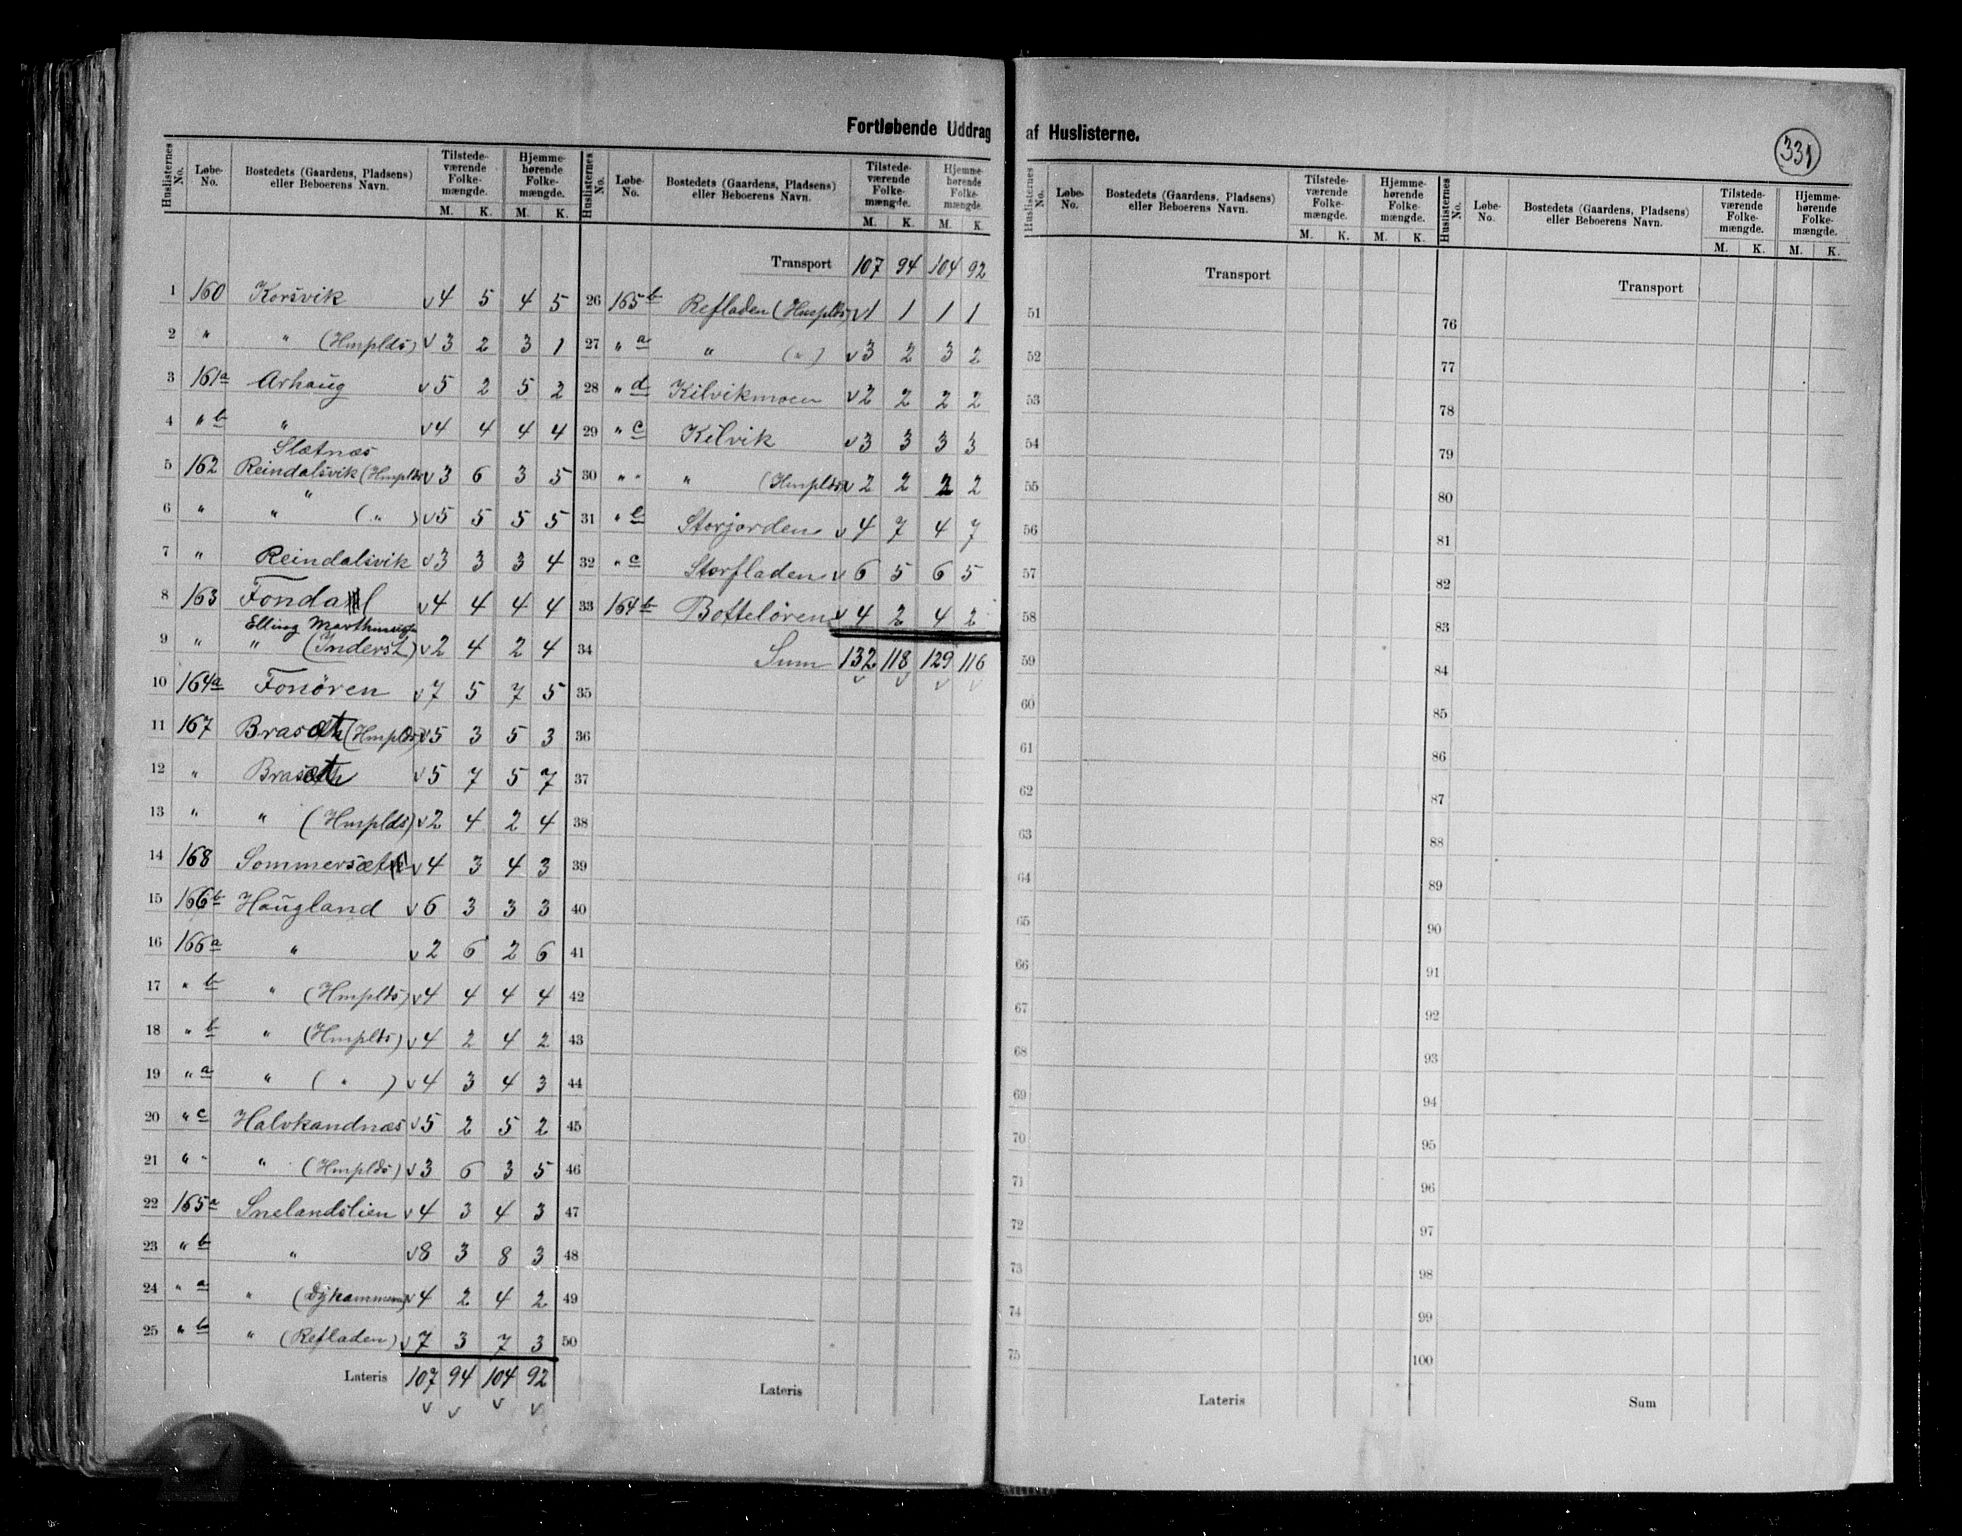 Fortløbende Uddrag af Huslisterne.
331
Huslisternes No. Løbe-No. Bostedets (Gaardens, Pladsens) eller Beboerens Navn. Tilstedeværende Folkemængde. M. K. Hjemmehørende Folkemængde. M. K.
1 160 Korsvik v4 5 4 5
2 " " (Hmplds) v3 2 3 1
3 161a Arhaug v5 2 5 2
4 " b " v4 4 4 4
Slætnæs
5 162 Reindalsvik (Hmplds) v3 6 3 5
"
6 " " ( " ) v5 5 5 5
7 " Reindalsvik v3 3 3 4
8 163 Fondal v4 4 4 4
Elling Marthinusen
9 " " (Inderst) v2 4 2 4
10 164a Fonøren v7 5 7 5
11 167 Brasæt (Hmplds) v5 3 5 3
12 " Brasæt v5 7 5 7
13 " " (Hmplds) v2 4 2 4
14 168 Sommersæt v4 3 4 3
15 166b Haugland v6 3 3 3
16 166a " v2 6 2 6
17 " b " (Hmplds) v4 4 4 4
18 " b " (Hmplds) v4 2 4 2
19 " a " ( " ) v4 3 4 3
20 " c Halvkandnæs v5 2 5 2
21 " " " (Hmplds) v3 6 3 5
22 165a Snelandslien v4 3 4 3
23 " b " v8 3 8 3
24 " a " (Dykammeren) v4 2 4 2
25 " b " (Refladen) v7 3 7 3
Lateris 107 94 104 92
v v v v
Huslisternes No. Løbe-No. Bostedets (Gaardens, Pladsens) eller Beboerens Navn. Tilstedeværende Folkemængde. M. K. Hjemmehørende Folkemængde. M. K.
Transport 107 94 104 92
26 165b Refladen (Husplds) v1 1 1 1
27 " a " ( " ) v3 2 3 2
28 " d Kilvikmoen v2 2 2 2
29 " c Kilvik v3 3 3 3
30 " " " (Hmplds) v2 2 2 2
31 " e Storjorden v4 7 4 7
32 " c Storfladen v6 5 6 5
33 164b Botteløren v4 2 4 2
34 Sum 132 118 129 116
v v v v
35
36
37
38
39
40
41
42
43
44
45
46
47
48
49
50
Lateris
Huslisternes No. Løbe-No. Bostedets (Gaardens, Pladsens) eller Beboerens Navn. Tilstedeværende Folkemængde. M. K. Hjemmehørende Folkemængde. M. K.
Transport
51
52
53
54
55
56
57
58
59
60
61
62
63
64
65
66
67
68
69
70
71
72
73
74
75
Lateris
Huslisternes No. Løbe-No. Bostedets (Gaardens, Pladsens) eller Beboerens Navn. Tilstedeværende Folkemængde. M. K. Hjemmehørende Folkemængde. M. K.
Transport
76
77
78
79
80
81
82
83
84
85
86
87
88
89
90
91
92
93
94
95
96
97
98
99
100
Sum